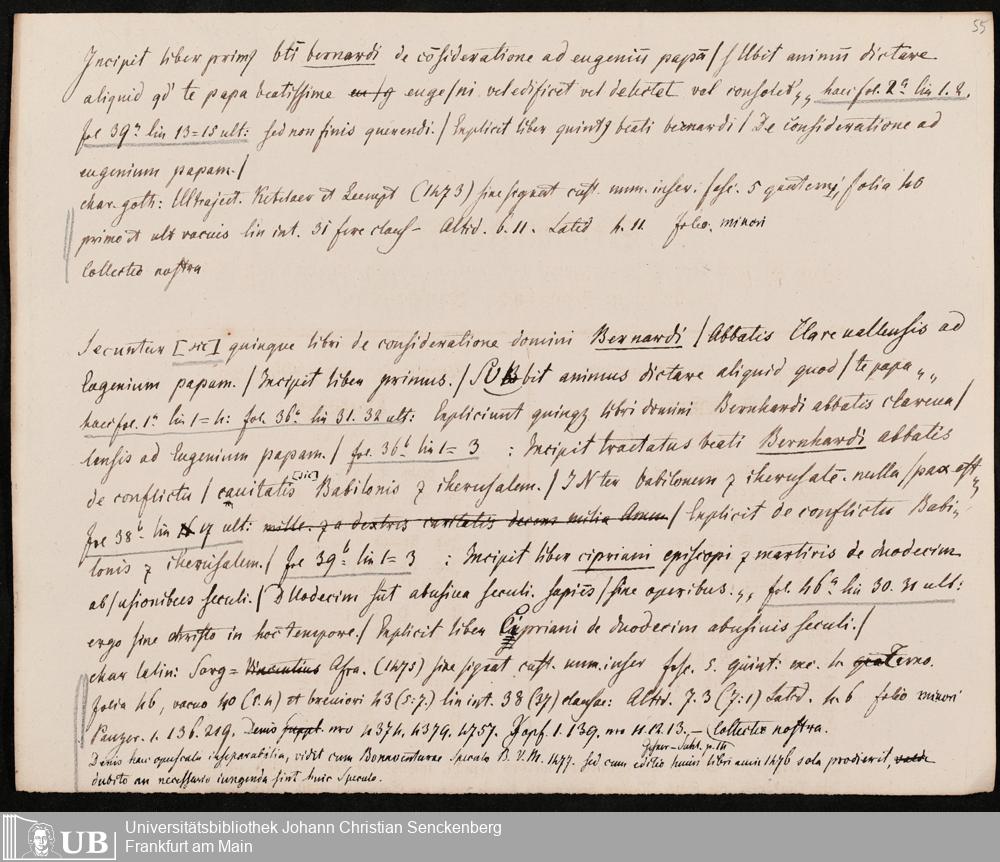 55
Incipit liber primꝰ bti bernardi de cōsideratione ad eugeniū papā / ſ Ubit animū dictare
aliquid qd' te papa beatissime euge/ni vel edificet vel delectet vel consolet',, haec fol. 2ᵃ lin 1. 2.
fol 39ᵃ lin 13=15 ult: sed non finis querendi. / Explicit liber quintꝰ beati bernardi / De consideratione ad
eugenium papam. /
char. goth: Ultraject. Ketelaer et Leempt (1473) sine signat cust. num. inser. fasc. 5 quaterni, folia 40
primo et ult vacuis lin int. 31 fere claus- Altid. 6. 11. Latid 4. 11 folio. minori
Collectio nostra
Secuntur [sic] quinque libri de consideratione domini Bernardi / Abbatis Clarevallensis ad
Eugenium papam. / Incipit liber primus. / SUbit animus dictare aliquid quod / te papa ,,
haec fol. 1ᵃ lin 1=4: fol. 36ᵃ lin 31. 32 ult: Expliciunt quinqꝫ libri domini Bernhardi abbatis clareua /
lensis ad Eugenium papam. / fol. 36ᵇ lin 1=3 : Incipit tractatus beati Bernhardi abbatis
de conflictu / cauitatis [sic] Babilonis ⁊ iherusalem. / INter babilonem ⁊ iherusalē. nulla / pax est ,,
fol 38ᵇ lin 17 ult: mille. ⁊ a dextris caritatis decem milia Amen / Explicit de conflictu Babi,,
lonis ⁊ iherusalem. / fol 39ᵇ lin 1=3 : Incipit liber cipriani episcopi ⁊ martiris de duodecim
ab / usionibus seculi. / DUodecim sūt abusiua seculi. sapiēs / sine operibus. ,, fol. 46ᵃ lin 30. 31 ult:
ergo sine christo in hoc tempore. / Explicit liber Cipriani de duodecim abusiuis seculi. /
char latin: Sorg= Vincentius Afra. (1475) sine signat cust. num. inser fasc. 5. quint: me. 4 quaterno.
folia 46, vacuo 40 (5. 4) et breviori 43 (5: 7.) lin int. 38 (37) clausae: Altid. 7. 3 (7: 1) Latid. 4. 6 folio minori
Panzer. 1. 136. 219. Denis suppl. nro 4374. 4379. 4757. Zapf. 1. 139. nro 11. 12. 13. - Collectio nostra.
Denis haec opuscula inseparabilia, vidit cum Bonaventurae Speculo B. V. M. 1477. sed cum editio huius libri anni 1476 sola prodierit, valde
dubito an necessario iungenda sint huic Speculo.
UB
Universitätsbibliothek Johann Christian Senckenberg
Frankfurt am Main